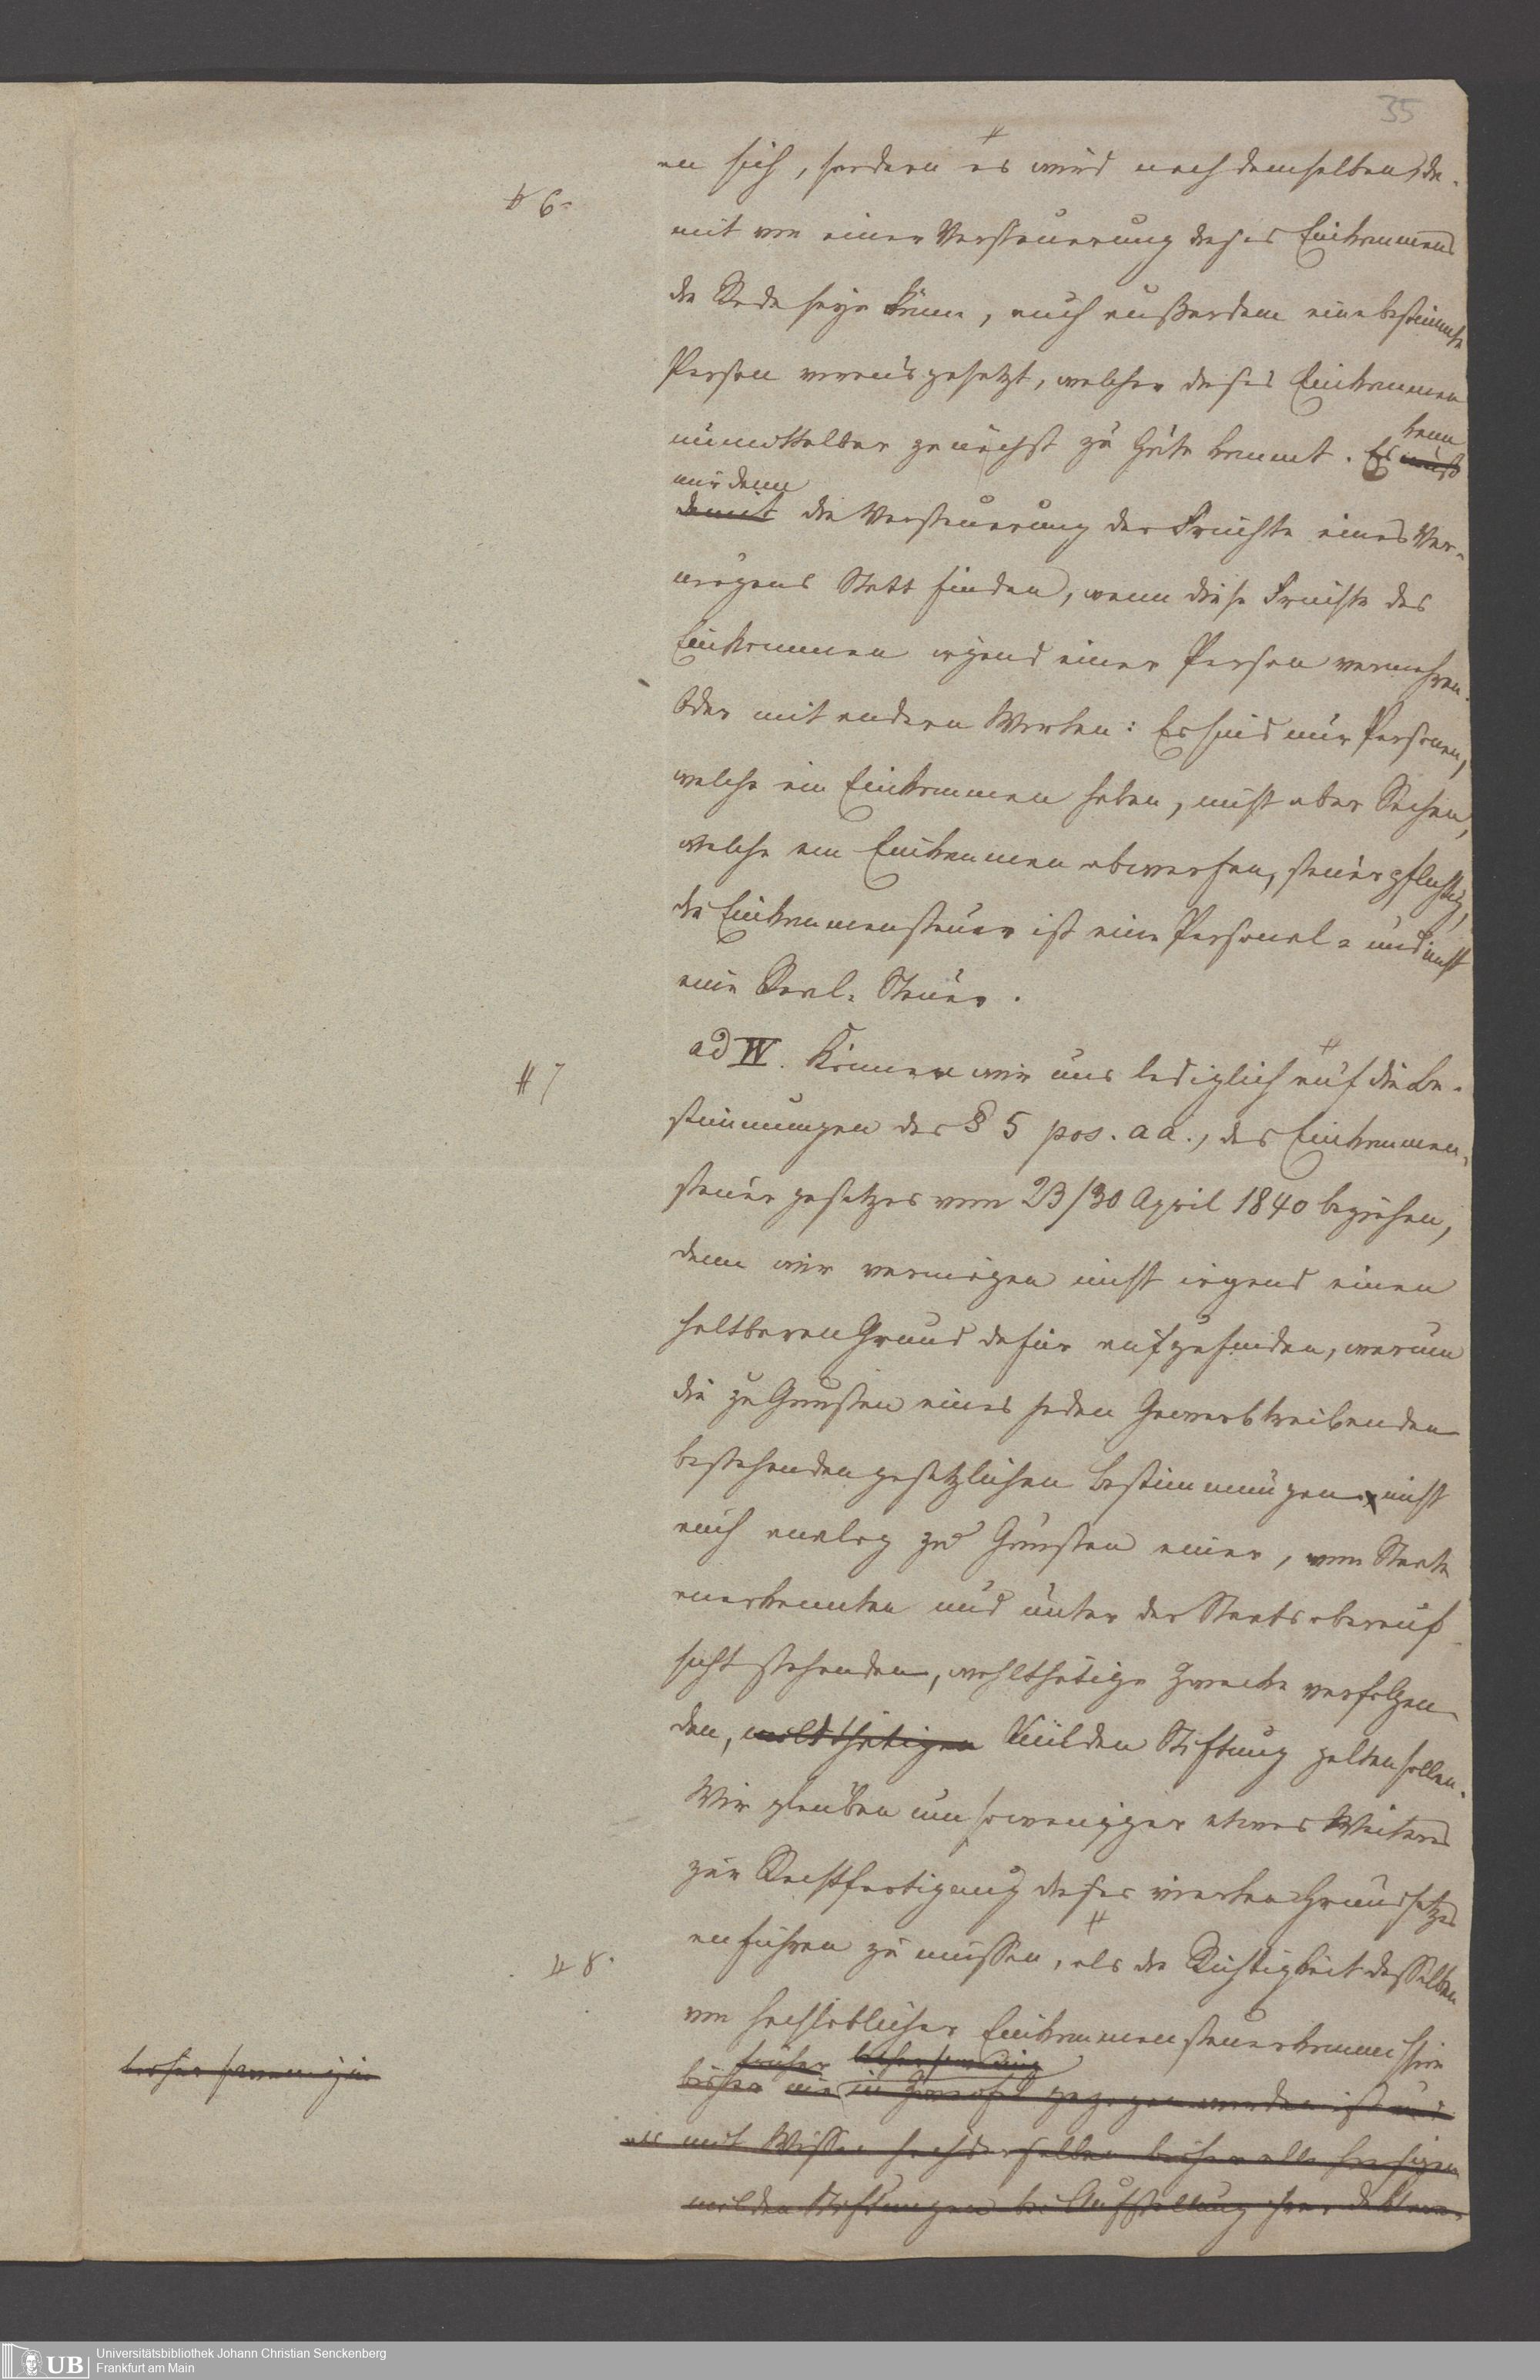 35
# 6.
an sich, sondern es wird nach demselben, da-
mit von einer Versteuerung dieses Einkommens
die Rede seyn könne, auch außerdem eine bestimmte
Person vorausgesetzt, welcher dieses Einkommen
unmittelbar zunächst zu Gute kommt. Es muß
kann
nur dann
damit die Versteuerung der Früchte eines Ver-
mögens Statt finden, wenn diese Früchte das
Einkommen irgend einer Person vermehren.
Oder mit andern Worten: Es sind nur Personen,
welche ein Einkommen haben, nicht aber Sachen,
welche ein Einkommen abwerfen, steuerpflichtig,
die Einkommensteuer ist eine Personal- und nicht
eine Real-Steuer.
# 7
ad IV. Können wir uns lediglich auf die Be-
stimmungen des § 5 pos. aa., des Einkommen-
steuergesetzes vom 23/30 April 1840 beziehen,
denn wir vermögen nicht irgend einen
haltbaren Grund dafür aufzufinden, warum
die zu Gunsten eines jeden Gewerbtreibenden
bestehenden gesetzlichen Bestimmungen nicht
auch analog zu Gunsten einer, vom Staate
anerkannten und unter der Staatsoberauf-
sicht stehenden, wohlthätige Zwecke verfolgen-
den, mildthätigen milden Stiftung gelten sollen.
Wir glauben um so weniger etwas Weiteres
zur Rechtfertigung dieses vierten Grundsatzes
# 8.
anführen zu müssen, als die Richtigkeit desselben
von hochlöblicher Einkommensteuerkommission
früher
bisher nie in Zweifel gezogen worden ist und
als mit Wissen hochderselben bisher alle hiesigen
milden Stiftungen bei Aufstellung ihrer Deklara-
Universitätsbibliothek Johann Christian Senckenberg
Frankfurt am Main
UB